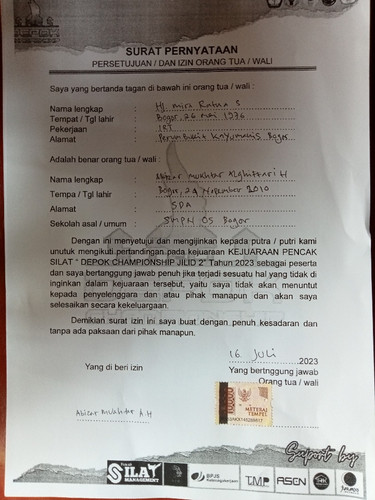 SURAT PERNYATAAN
PERSETUJUAN / DAN IZIN ORANG TUA / WALI
Saya yang bertanda tagan di bawah ini orang tua / wali :
Nama lengkap : Hj Mira Ratna S
Tempat / Tgl lahir : Bogor, 26 Mei 1976
Pekerjaan : IRT
Alamat : Bogor
Adalah benar orang tua / wali :
Nama lengkap : Abizar Mukhtar H
Tempa / Tgl lahir : Bogor, 24 November 2010
Alamat : SDA
Sekolah asal / umum : SMPN 05 Bogor
Dengan ini menyetujui dan mengijinkan kepada putra / putri kami
unutuk mengikuti pertandingan pada kejuaraan KEJUARAAN PENCAK
SILAT " DEPOK CHAMPIONSHIP JILID 2" Tahun 2023 sebagai peserta
dan saya bertanggung jawab penuh jika terjadi sesuatu hal yang tidak di
inginkan dalam kejuaraan tersebut, yaitu saya tidak akan menuntut
kepada penyelenggara dan atau pihak manapun dan akan saya
selesaikan secara kekeluargaan.
Demikian surat izin ini saya buat dengan penuh kesadaran dan
tanpa ada paksaan dari pihak manapun.
16 Juli 2023
Yang di beri izin
Yang bertnggung jawab
Orang tua / wali
10000
METERAI
TEMPEL
Abizar Mukhtar A.H
Suport by
SILAT
MANAGEMENT
BPJS
Ketenagakerjaan
TMP
ASCN